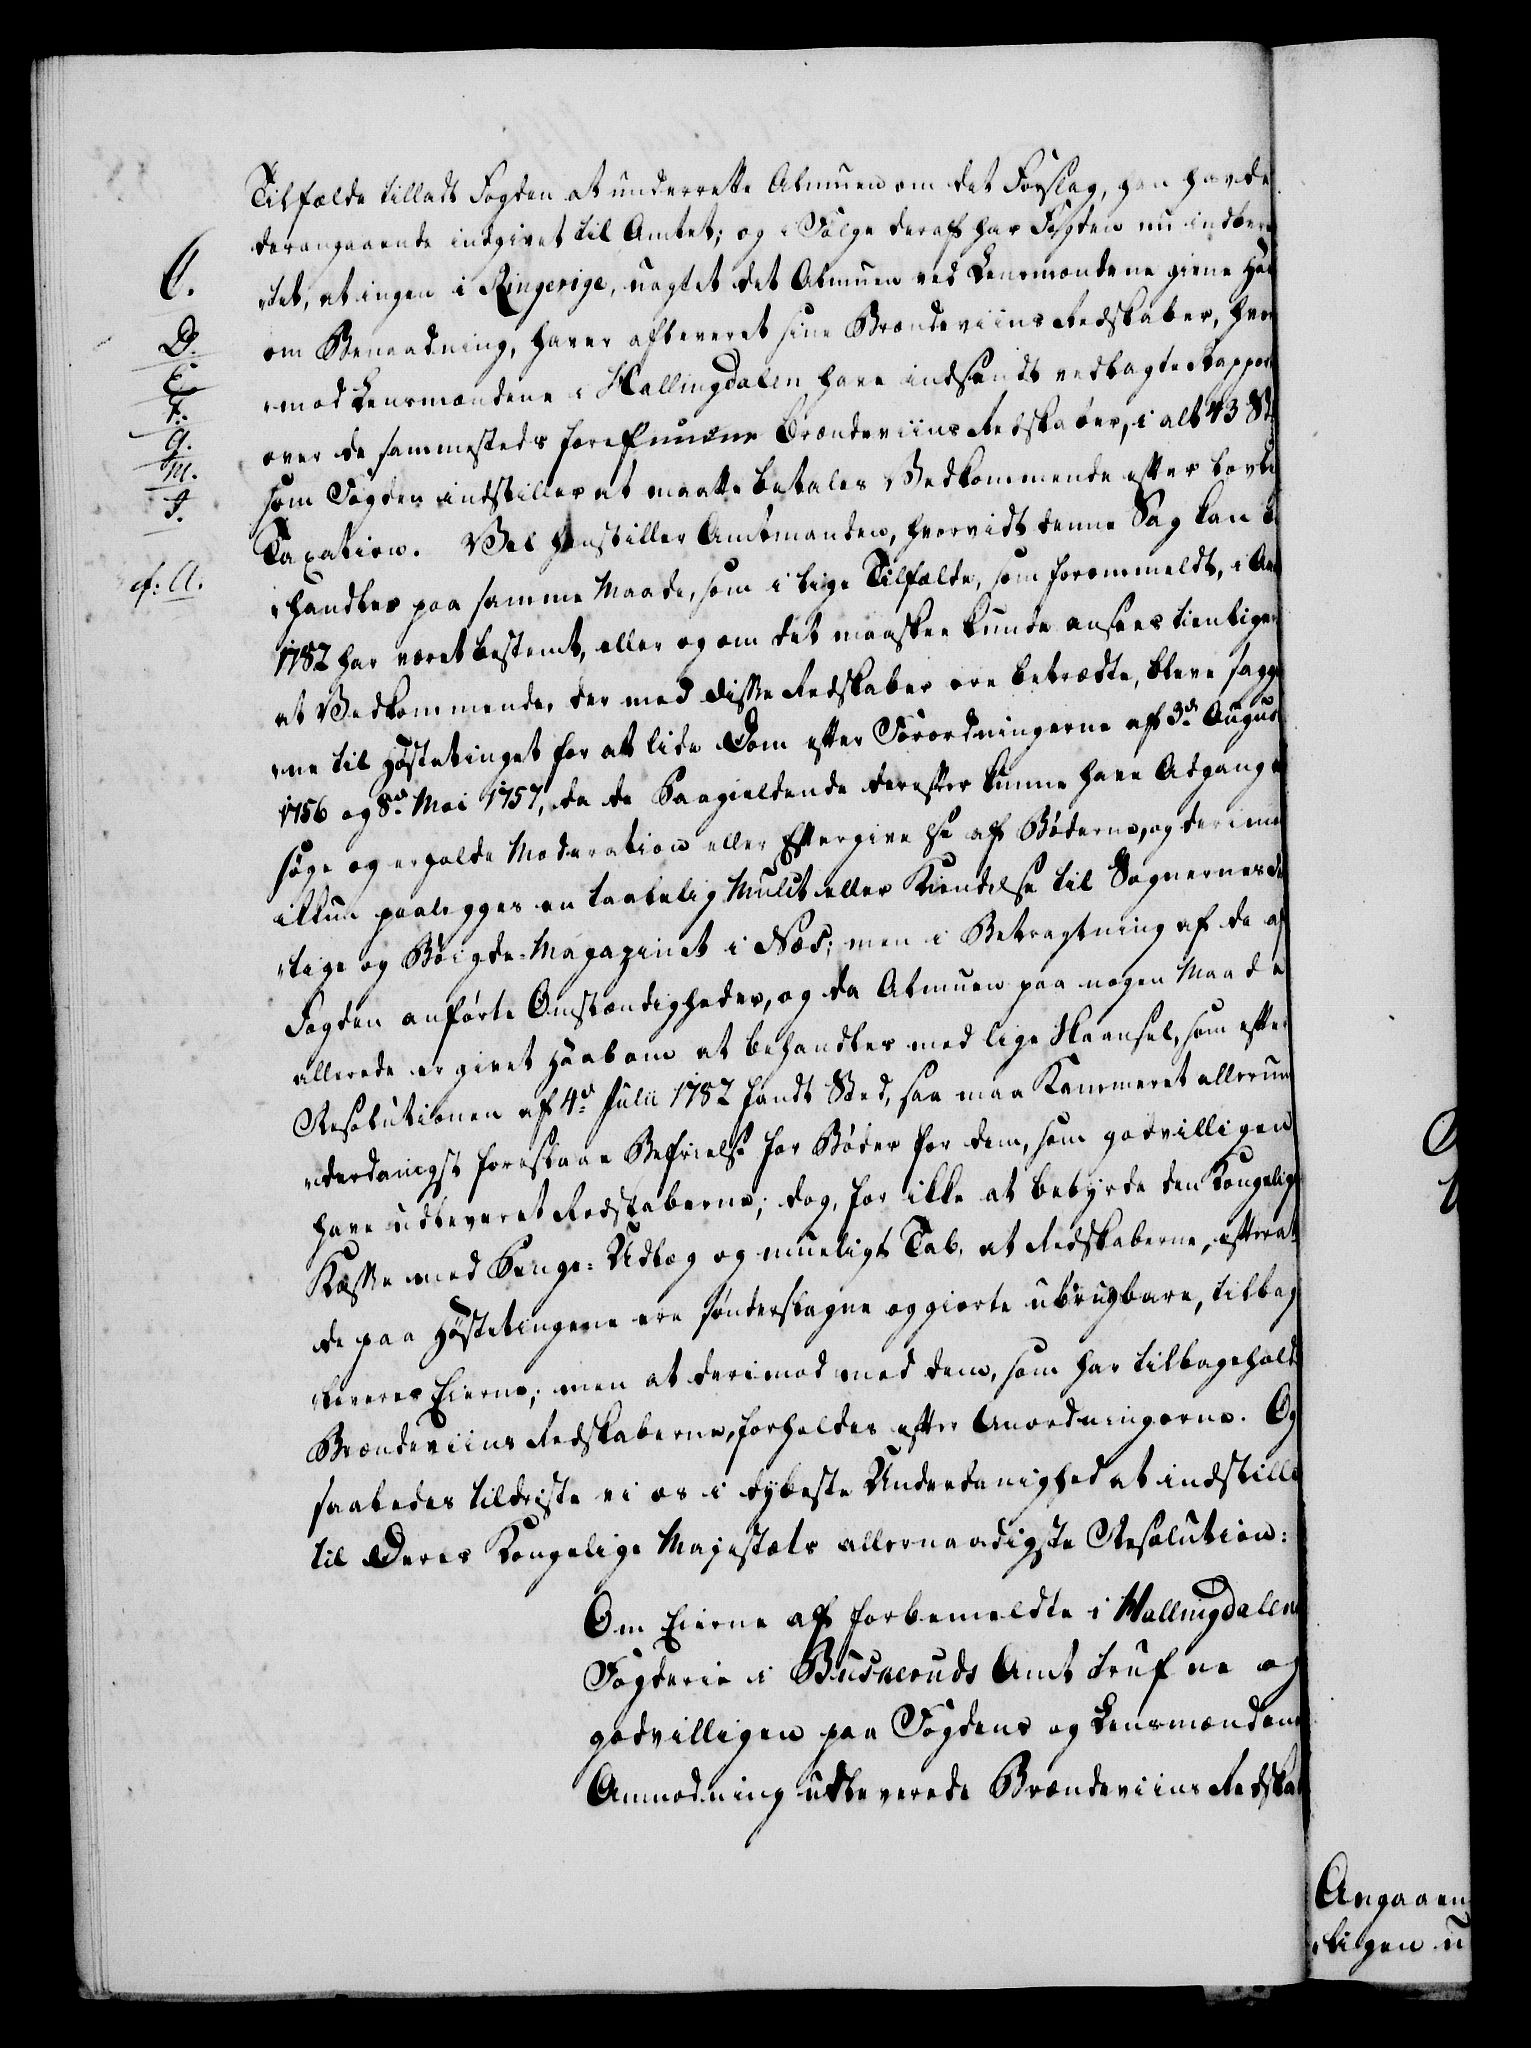 Tilfælde tilladt Fogden at underrette Almuen om det Forslag, han havde
derangaaende indgivet til Amtet; og i Følge deraf har Fogden nu indbere
C.
tet, at ingen i Ringerige, uagtet det Almuen ved Lensmændene givne Haab
D.
om Benaadning, haver afleveret sine Brændeviins Redskaber, hvor
E.
imod Lensmændene i Hallingdalen have indsendt vedlagte Rappor
F.
G.
over de sammesteds forefunne Brændeviins Redskaber, i alt 43 St
M.
som Fogden indstiller at maatte betales Vedkommende efter lovlig
I.
Taxation. Vel henstiller Amtmanden, hvorvidt denne Sag kan be
cf: A.
handles paa samme Maade, som i lige Tilfælde, som forommeldt, i Aar
1782 har været bestemt, eller og om det maaskee kunde ansees tienligere
at Vedkommende, der med disse Redskaber ere betrædte, bleve sagg
ne til Høstetinget for at lide Dom efter Forordningerne af 3de August
1756 og 8de Mai 1757, da de Saagieldende derefter kunne have Adgang at
søge og erholde Moderation eller Eftergivelse af Bøderne, og derimod
ikkun paalegges en taalelig Mulct eller Kiendelse til Sognernes Fat
tige og Bøigde-Magazinet i Næs; men i Betragtning af de af
Fogden anførte Omstændigheder, og da Almuen paa nogen Maade
allerede er givet Haab om at behandles med lige Skaansel, som efter
Resolutionen af 4de Julii 1782 fandt Sted, saa maa Kammeret allerun
derdanigst foreslaae Befrielse for Bøder for dem, som godvilligen
have udleveret Redskaberne; dog, for ikke at bebyrde den Kongelige
Kasse med Penge-Udlæg og mueligt Tab, at Redskaberne, efterat
de paa Høstetingene ere sønderslagne og giorte ubrugbare, tilbag
leveres Eierne; men at derimod med dem, som har tilbageholdt
Brændeviins Redskaberne, forholdes efter Anordningerne. Og
saaledes tildriste vi os i dybeste Underdanighed at indstille
til Deres Kongelige Majestæts allernaadigste Resolution:
Om Eierne af forbemeldte i Hallingdalens
Fogderie i Buskeruds Amt trufne og
godvilligen paa Fogdens og Lensmændenes
Anmodning udleverede Brændeviins Redskab
Angaaen
ligen u